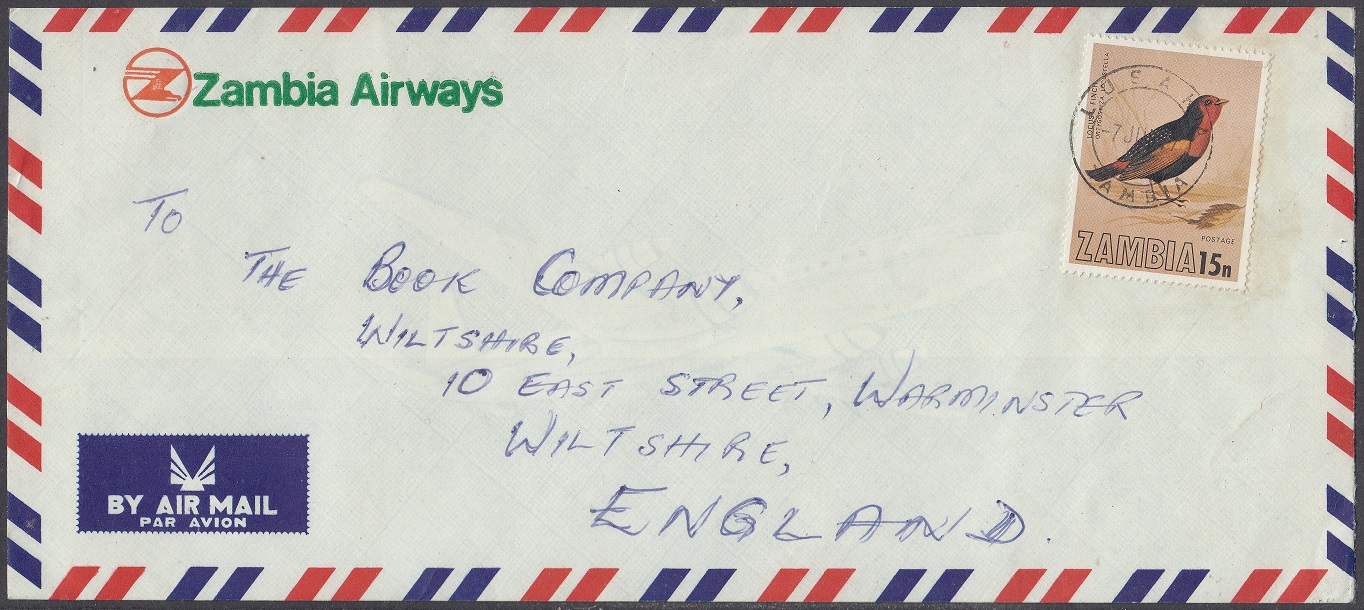 Zambia Airways
LOCUST FINCH
ORTYGOSPIZA LOCUSTELLA
LUSAKA
7 JU
ZAMBIA
POSTAGE
ZAMBIA 15n
TO
THE BOOK COMPANY,
WILTSHIRE,
10 EAST STREET, WARMINSTER
WILTSHIRE,
ENGLAND.
BY AIR MAIL
PAR AVION